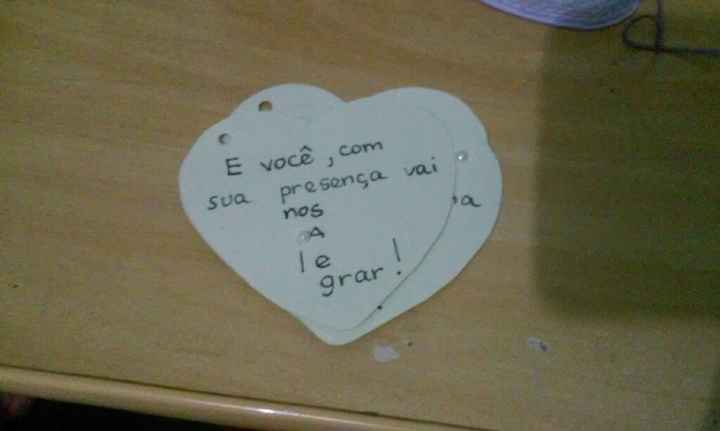 E você, com
sua presença vai
nos
A
le
grar!
a